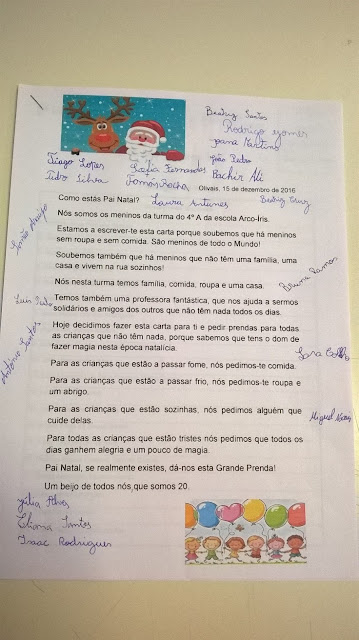 Beatriz Santos
Rodrigo Gomes
Joana Martins
João Pedro
Tiago Lopes Sofia Fernandes Bachir Ali
Pedro Silva Tomás Rocha
Olivais, 15 de dezembro de 2016
Como estás Pai Natal? Laura Antunes Beatriz Cruz
Nós somos os meninos da turma do 4º A da escola Arco-Íris.
Simão Araújo
Estamos a escrever-te esta carta porque soubemos que há meninos
sem roupa e sem comida. São meninos de todo o Mundo!
Soubemos também que há meninos que não têm uma família, uma
casa e vivem na rua sozinhos!
Bruna Ramos
Nós nesta turma temos família, comida, roupa e uma casa.
Luís
Temos também uma professora fantástica, que nos ajuda a sermos
solidários e amigos dos outros que não têm nada todos os dias.
António Santos
Hoje decidimos fazer esta carta para ti e pedir prendas para todas
as crianças que não têm nada, porque sabemos que tens o dom de
fazer magia nesta época natalícia.
Sara
Para as crianças que estão a passar fome, nós pedimos-te comida.
Para as crianças que estão a passar frio, nós pedimos-te roupa e
um abrigo.
Para as crianças que estão sozinhas, nós pedimos alguém que
cuide delas.
Miguel
Para todas as crianças que estão tristes nós pedimos que todos os
dias ganhem alegria e um pouco de magia.
Pai Natal, se realmente existes, dá-nos esta Grande Prenda!
Um beijo de todos nós,que somos 20.
Júlia Alves
Eliana Santos
Isaac Rodrigues